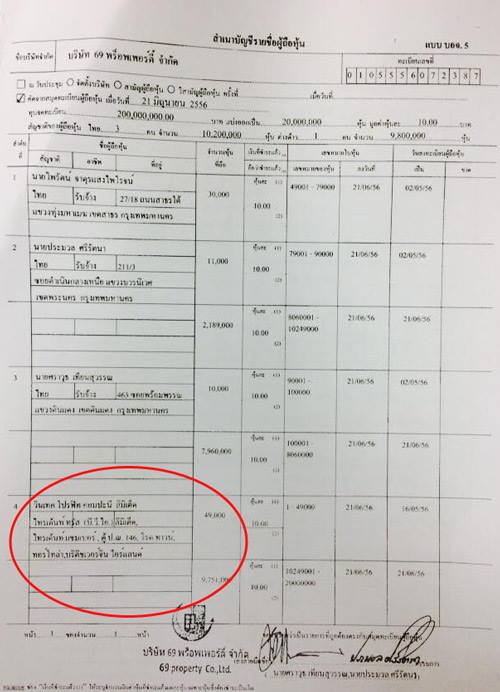 สำเนาบัญชีรายชื่อผู้ถือหุ้น
แบบ บอจ. 5
ชื่อบริษัทจำกัด บริษัท 69 พร็อพเพอร์ตี้ จำกัด
ทะเบียนเลขที่
0 1 0 5 5 5 6 0 7 2 3 8 7
ณ วันประชุม จัดตั้งบริษัท สามัญผู้ถือหุ้น วิสามัญผู้ถือหุ้น ครั้งที่ เมื่อวันที่
คัดจากสมุดทะเบียนผู้ถือหุ้น เมื่อวันที่ 21 มิถุนายน 2556
ทุนจดทะเบียน 200,000,000.00 บาท แบ่งออกเป็น 20,000,000 หุ้น มูลค่าหุ้นละ 10.00 บาท
สัญชาติของผู้ถือหุ้น ไทย 3 คน จำนวน 10,200,000 หุ้น 1 คน จำนวน 9,800,000 หุ้น
ชื่อผู้ถือหุ้น จำนวนหุ้น เลขหมายใบหุ้น วันลงทะเบียนผู้ถือหุ้น
สัญชาติ อาชีพ ที่อยู่ ที่ถือ เลขหมายของหุ้น ลงวันที่ เป็น ขาด
1 นายไพรัตน์
ไทย รับจ้าง 27/18 ถนนสาธรใต้
แขวงทุ่งมหาเมฆ เขตสาธร กรุงเทพมหานคร
30,000 หุ้นละ (1) 10.00 (2) 49001 - 79000 21/06/56 02/05/56
2 นายประมวล ศรีรัตนา
ไทย รับจ้าง 211/3
ซอยดำเนินกลางเหนือ แขวงบวรนิเวศ
เขตพระนคร กรุงเทพมหานคร
11,000 หุ้นละ (1) 10.00 (2) 79001 - 90000 21/06/56 02/05/56
2,189,000 หุ้นละ (1) 10.00 (2) 8060001 - 10249000 21/06/56 21/06/56
3 นายศราวุธ เทียนสุวรรณ
ไทย รับจ้าง 463 ซอยพร้อมพรรณ
แขวงดินแดง เขตดินแดง กรุงเทพมหานคร
10,000 หุ้นละ (1) 10.00 (2) 90001 - 100000 21/06/56 02/05/56
7,960,000 หุ้นละ (1) 10.00 (2) 100001 - 8060000 21/06/56 21/06/56
4 วินเทค โปรฟิท คอมปะนี ลิมิเต็ด
ไทรเด้นท์ ทรัส (บี.วี.ไอ.) ลิมิเต็ด,
ไทรเด้นท์ แชมเบอร์, ตู้ ป.ณ. 146, โรด ทาวน์,
ทอร์โทล่า, บริติชเวอร์จิ้น ไอร์แลนด์
49,000 หุ้นละ (1) 10.00 (2) 1 - 49000 21/06/56 16/05/56
9,751,000 หุ้นละ (1) 10.00 (2) 10249001 - 20000000 21/06/56 21/06/56
หน้า 1 ของจำนวน 1 หน้า
บริษัท 69 พร็อพเพอร์ตี้ จำกัด
69 property Co.,Ltd.
กรรมการ
(นายศราวุธ เทียนสุวรรณ,นายประมวล ศรีรัตนา)